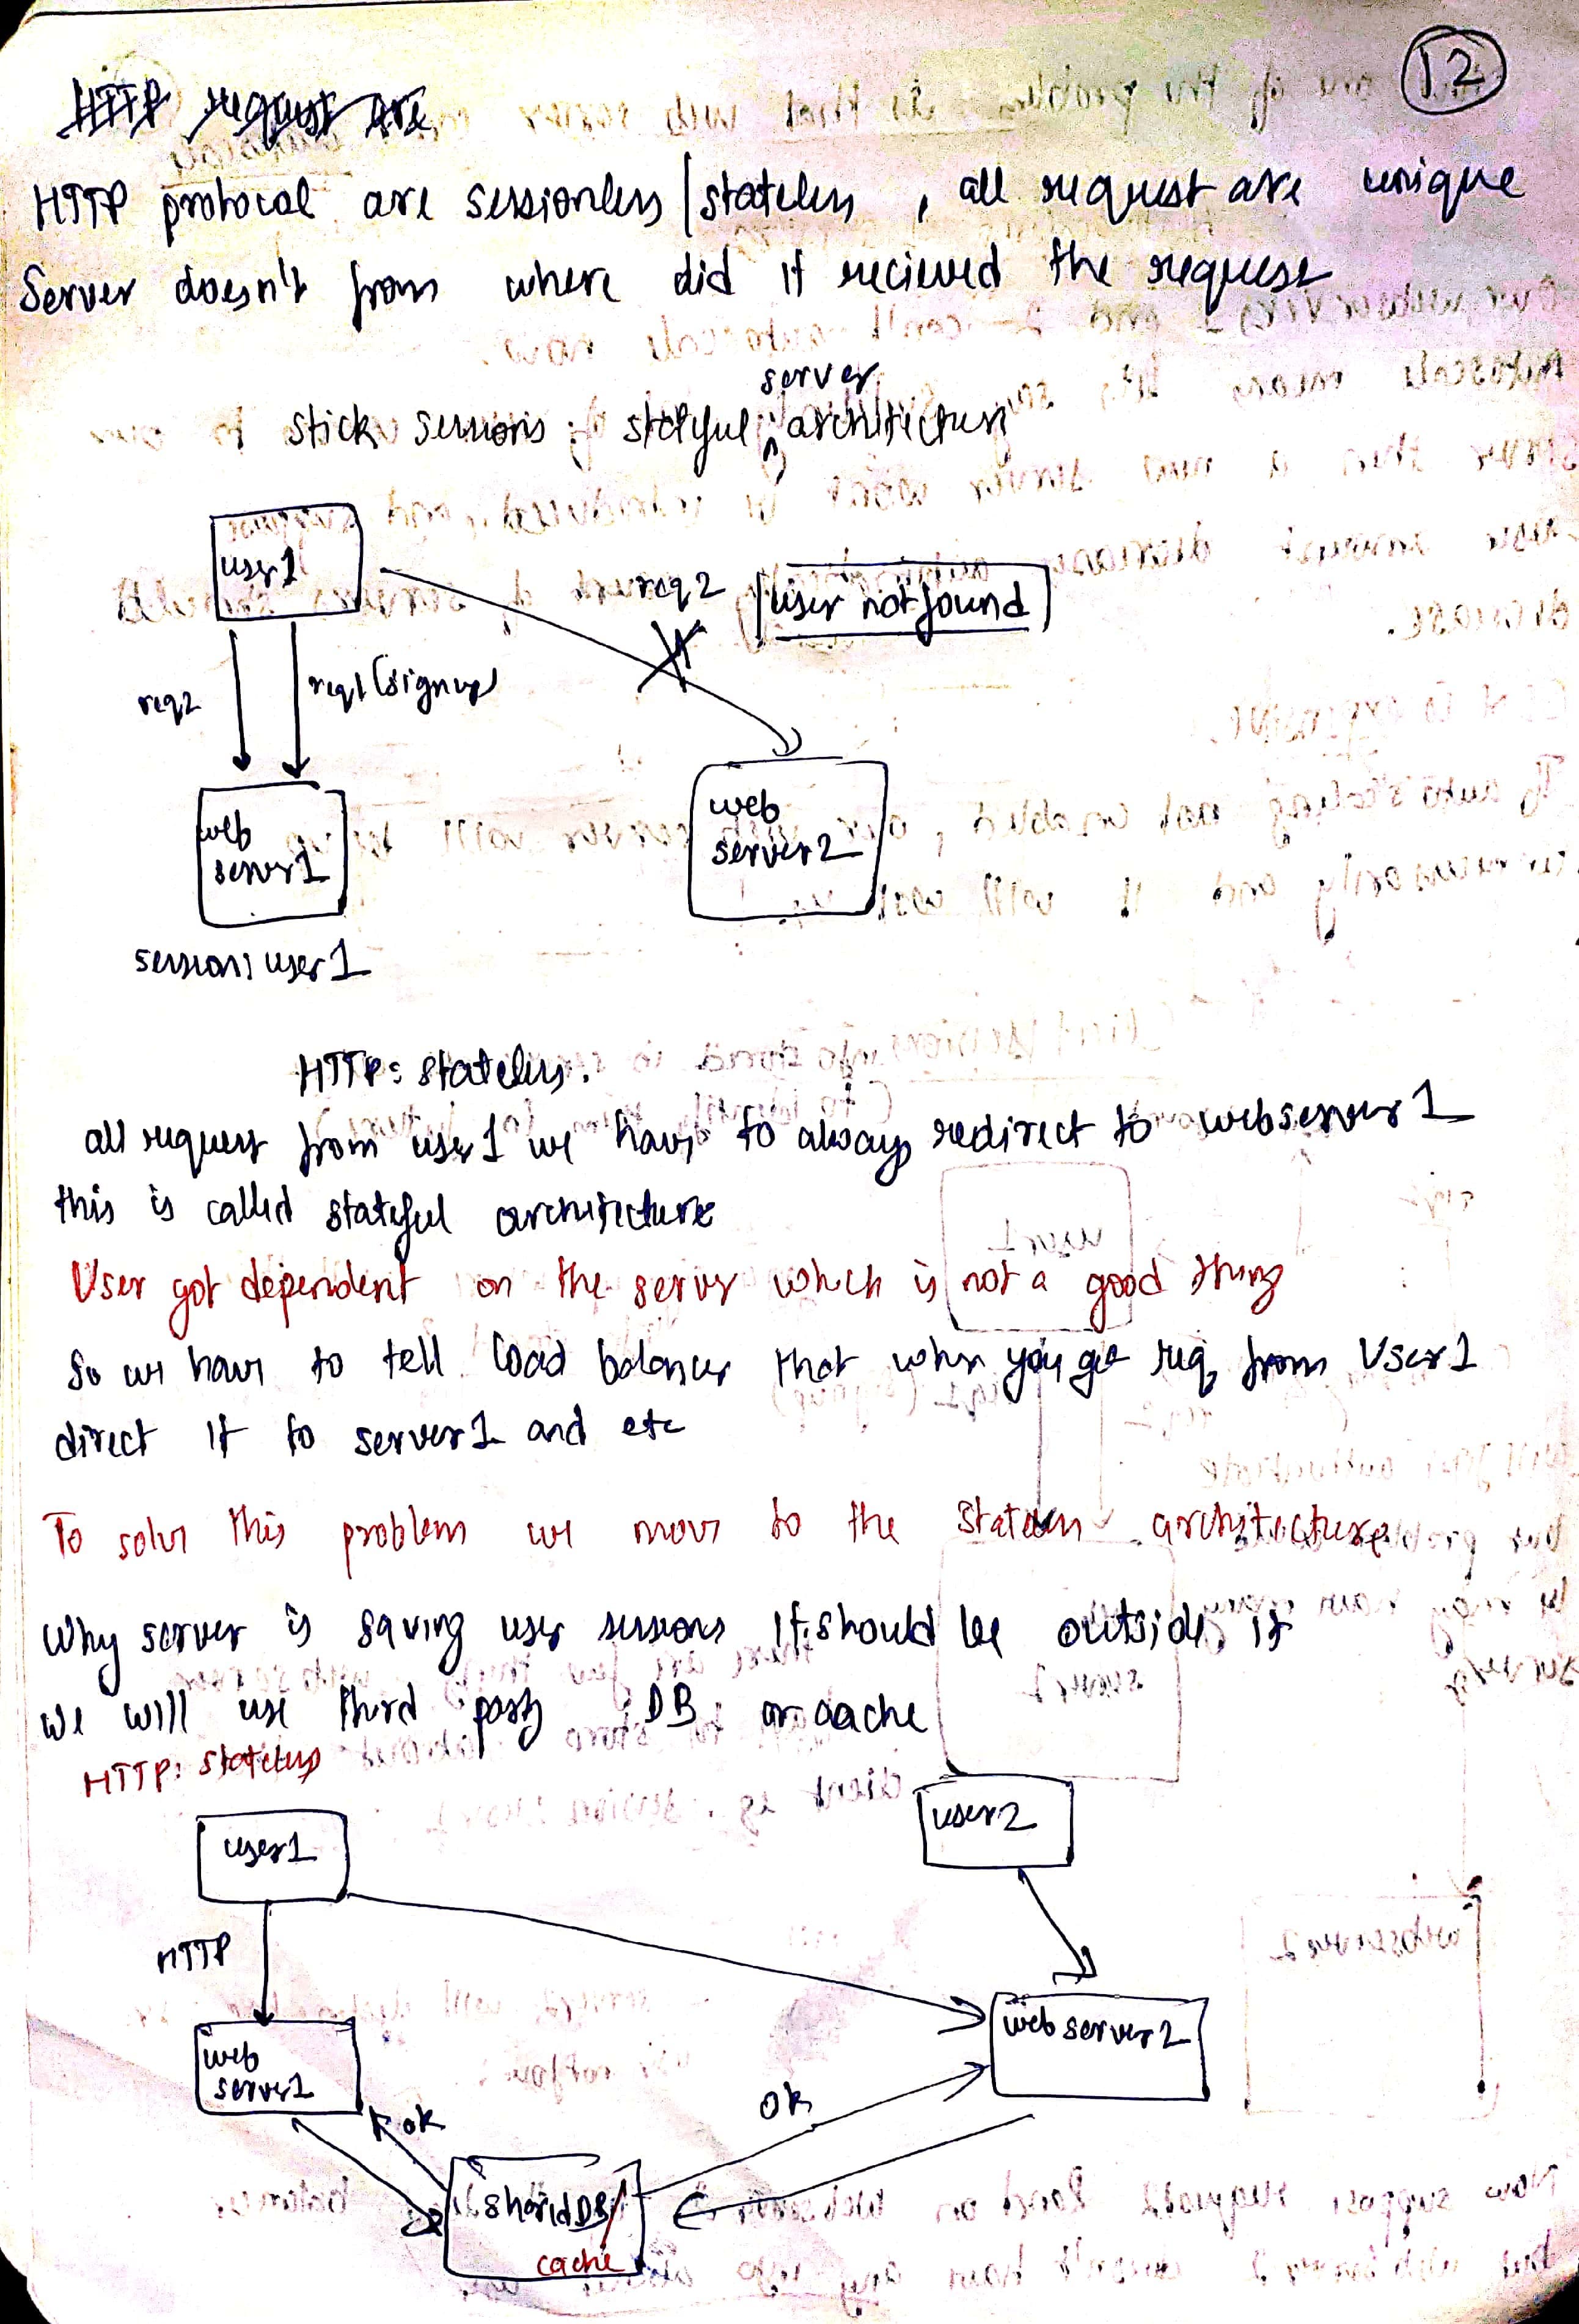 12
HTTP request are
HTTP protocol are sessionless/stateless, all request are unique
Server doesn't from where did it recieved the request
server
stick sessions : stateful architecture
user 1
req 2
user not found
req2
req1 (signup)
web
server 1
web
server 2
session: user 1
HTTP: stateless.
all request from user 1 we have to always redirect to webserver 1
this is called stateful architecture
User got dependent on the server which is not a good thing
So we have to tell load balancer that when you get req, from User 1
direct it to server 1 and etc
To solve this problem we move to the Stateless architecture
Why server is saving user sessions it should be outside it
we will use third party DB or cache
HTTP: stateless
user 1
user 2
HTTP
web
server 1
web server 2
ok
ok
shared DB/
cache